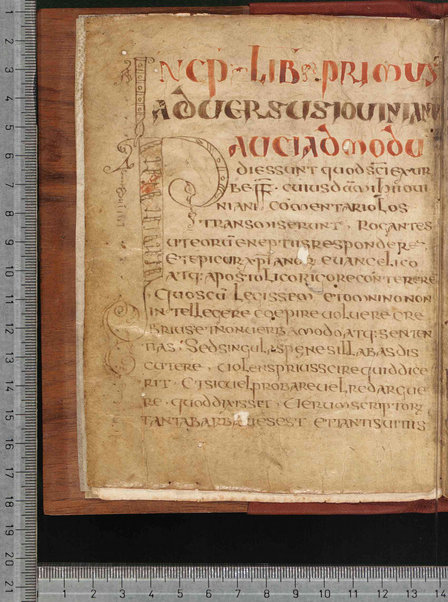 INCP LIB PRIMUS
ADUERSUS IOUINIANU
PAUCI ADMODU
DIES SUNT QUOD SCI EX UR
BE FF CUIUSDAM IHOUI
NIANI COMENTARIOLOS
TRANSMISERUNT ROGANTES
UT EORUM INEPTIIS RESPONDERE
ET EPICURU XPIANISMI EUANGELICO
ATQ APOSTOLICO RIGORE CONTERERE
QUOS CU LEGISSEM ET OMNINO NON
INTELLEGERE COEPI REUOLUERE CRE
BRIUS ET NON UERBA MODO ATQ SENTEN
TIAS SED SINGULAS PENE SILLABAS DIS
CUTERE UOLENS PRIUS SCIRE QUID DICE
RIT ET SIC UEL PROBARE UEL REDARGUE
RE QUOD DIXISSET UERUM SCRIPTORU
TANTA BARBARIES EST ET TANTIS UITIIS